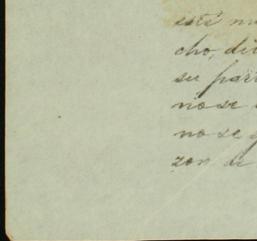 este mu
cho, di
su par
no se
no se g
zon de